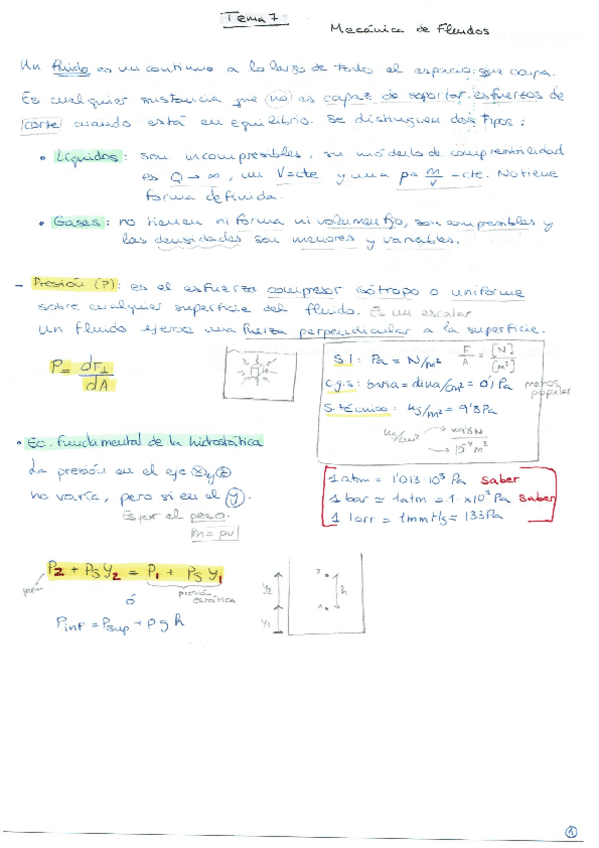 Tema 7
Mecánica de Fluidos
Un fluido es un continuo a lo largo de todo el espacio que ocupa.
Es cualquier sustancia que no es capaz de soportar esfuerzos de
corte cuando está en equilibrio. Se distinguen dos tipos:
• Líquidos: son incompresibles, su módulo de compresibilidad
es Q → ∞, un V=cte y una ρ = m/V = cte. No tiene
forma definida.
• Gases: no tienen ni forma ni volumen fijo, son compresibles y
las densidades son menores y variables.
- Presión (P): es el esfuerzo compresor isótropo o uniforme
sobre cualquier superficie del fluido. Es un escalar
Un fluido ejerce una fuerza perpendicular a la superficie.
P = dF⊥/dA
S.I: Pa = N/m² F/A = [N]/[m²]
c.g.s: baria = dina/cm² = 0,1 Pa menos popular
S. técnico: kg/m² = 9'8 Pa
kg/cm² → x9'8N
→ 10⁻⁴ m²
• Ec. Fundamental de la hidrostática
La presión en el eje x y z
no varía, pero si en el y.
Es por el peso.
m = ρv
1 atm = 1'013·10⁵ Pa saber
1 bar ≃ 1atm = 1 x10⁵ Pa saber
1 Torr = 1mmHg = 133Pa
P2 + ρg y2 = P1 + ρg y1
presión estática
ó
Pinf = Psup + ρ g h
y2
y1
2
1
h
1